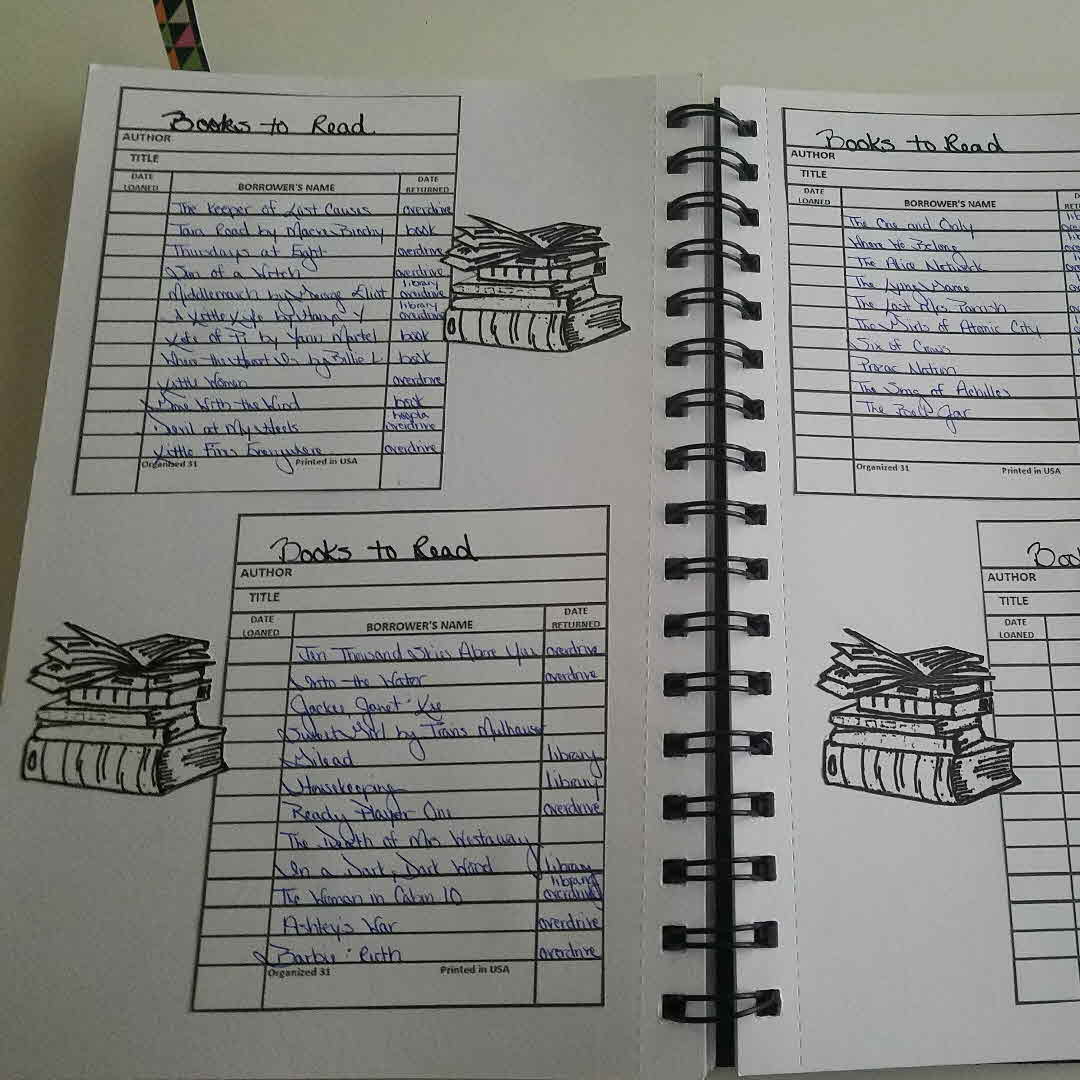 Books to Read
AUTHOR
TITLE
DATE LOANED BORROWER'S NAME DATE RETURNED
The Keeper of Lost Causes overdrive
Tara Road by Maeve Binchy book
Thursdays at Eight overdrive
Son of a Witch overdrive
Middlemarch by George Eliot library overdrive
A Little Life by Hanya Y library overdrive
Life of Pi by Yann Martel book
Where the Heart Is by Billie L. book
Little Women overdrive
Gone With the Wind book
Devil at My Heels hoopla overdrive
Little Fires Everywhere overdrive
Organized 31 Printed in USA
Books to Read
AUTHOR
TITLE
DATE LOANED BORROWER'S NAME DATE RETURNED
Ten Thousand Skies Above You overdrive
Into the Water overdrive
Jackie Janet: Lee
Sweet Girl by Travis Mulhauser
Gilead library
Housekeeping library
Ready Player One overdrive
The Death of Mrs Westaway
In a Dark, Dark Wood library
The Woman in Cabin 10 library overdrive
Ashley's War overdrive
Barbie: Ruth overdrive
Organized 31 Printed in USA
Books to Read
AUTHOR
TITLE
DATE LOANED BORROWER'S NAME
The One and Only
Where We Belong
The Alice Network
The Lying Game
The Last Mrs. Parrish
The Girls of Atomic City
Six of Crows
Prozac Nation
The Song of Achilles
The Bell Jar
Organized 31 Printed in USA
AUTHOR
TITLE
DATE LOANED